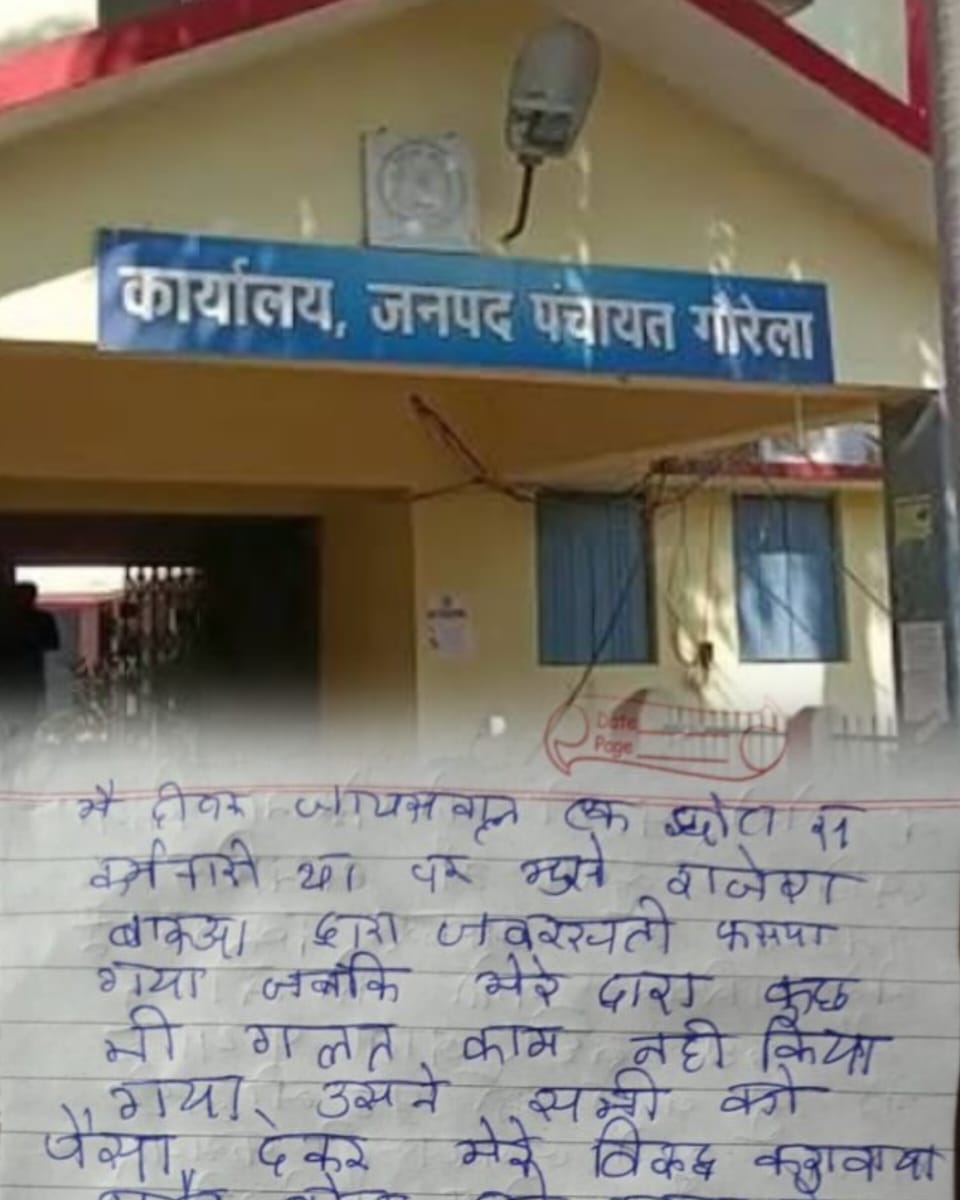 कार्यालय, जनपद पंचायत गौरेला
Date
Page
मै जायसवाल एक छोटा सा
कर्मचारी था पर मुझे
द्वारा जबरस्यती फसया
गया जबकि मेरे द्वारा कुछ
भी गलत काम नही किया
गया, उसने सभी को
पैसा, देकर मेरे विरुद्ध